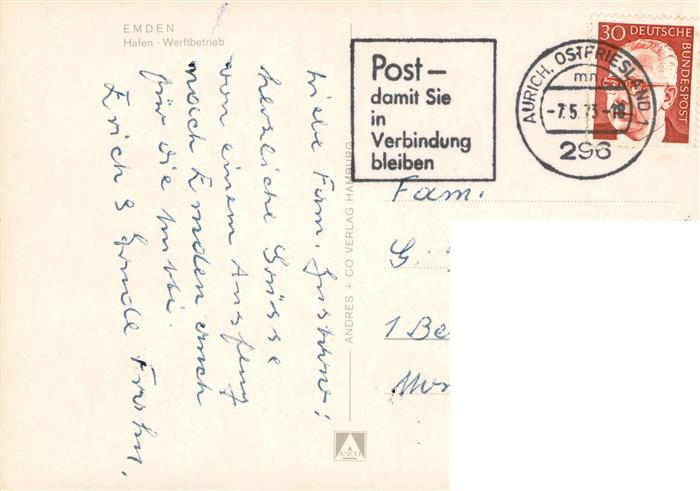 EMDEN
Hafen · Werftbetrieb
Liebe Fam. Gustav!
herzliche Grüsse
von einem Ausflug
nach Emden auch
für die Mutti.
Erich &
ANDRES + CO VERLAG HAMBURG
ANCO
Post –
damit Sie
in
Verbindung
bleiben
AURICH, OSTFRIESLAND 1
mn
-7.5.73-18
296
30 DEUTSCHE
BUNDESPOST
Fam.
G.
1 Be